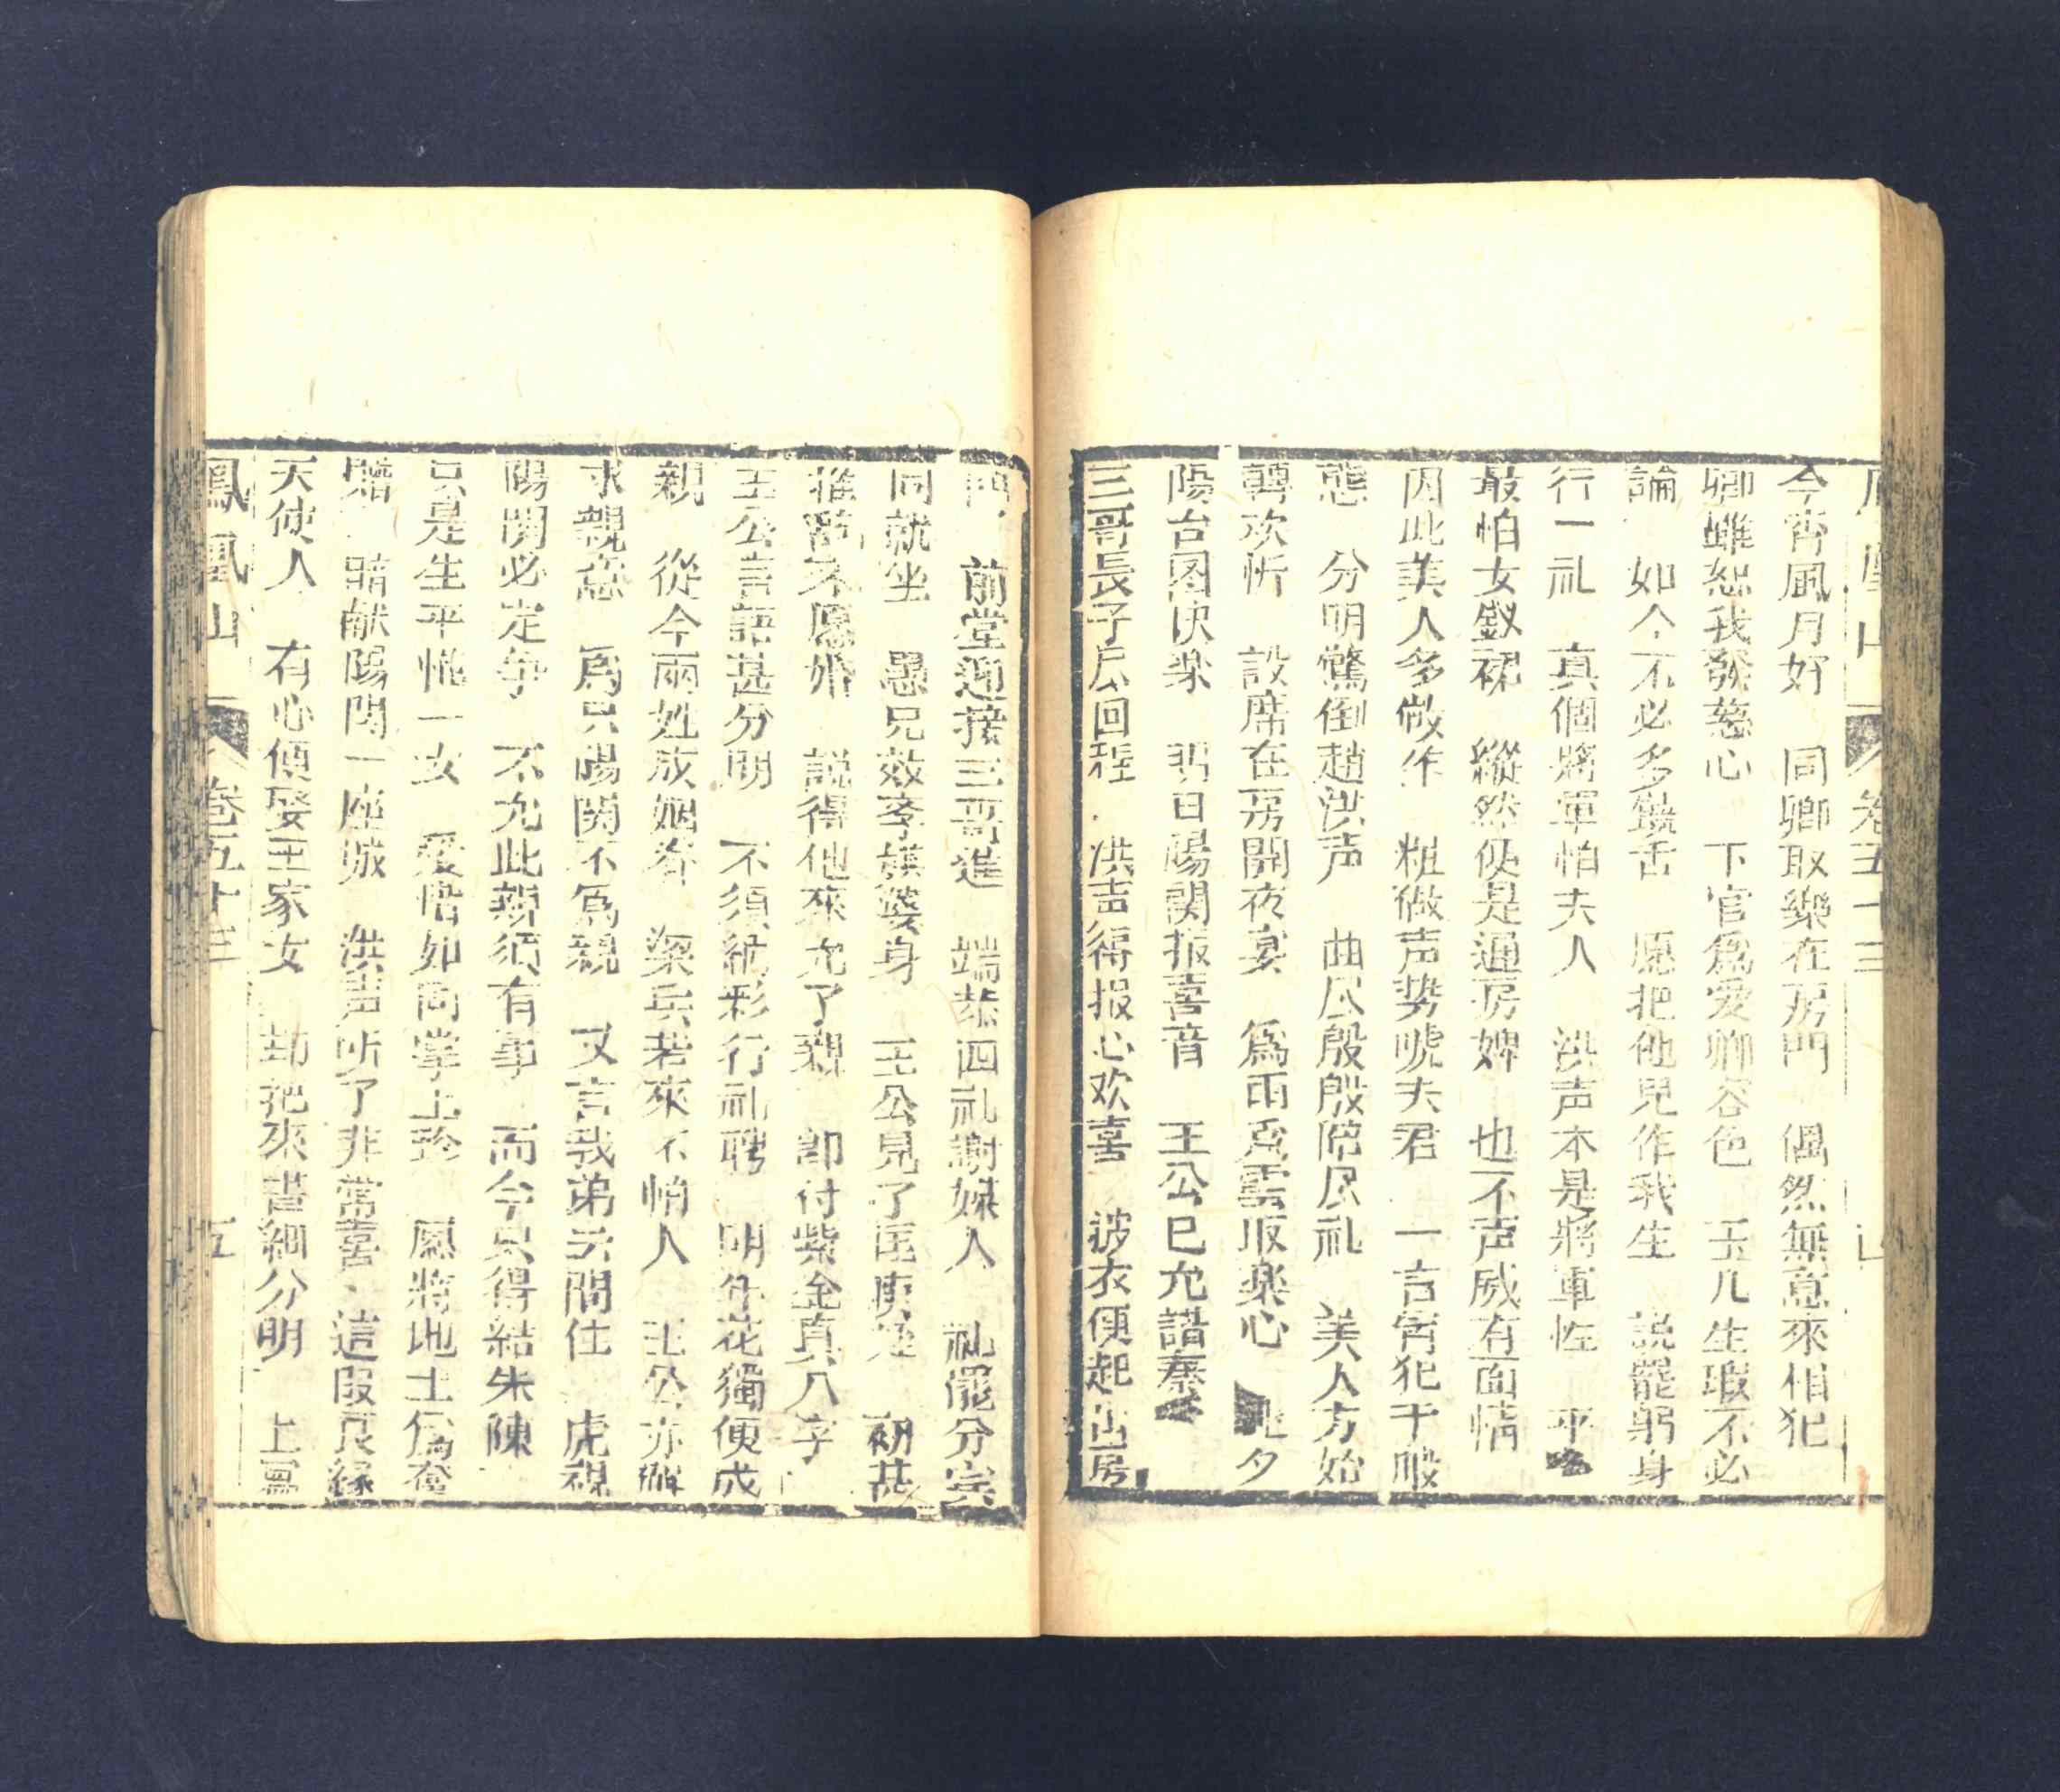 鳳凰山 卷五十三
今宵風月好 同卿取樂在房門 偶然無意來相犯
卿雖恕我發慈心 下官爲愛卿容色 玉几生瑕不必
論 如今不必多饒舌 愿把他兒作我生 說罷躬身
行一礼 真個將軍怕夫人 洪声本是將軍性 平
最怕女釵裙 縱然便是通房婢 也不声威有面情
因此美人多做作 粧做声势唬夫君 一言寄犯千般
態 分明驚倒趙洪声 曲尽殷殷陪尽礼 美人方始
轉欢忻 設席在房開夜宴 爲雨爲雲取楽心 夕
陽台图快楽 明日陽関报喜音 王公已允諧秦
三哥長子后回程 洪声得报心欢喜 披衣便起出房
門 前堂迎接三哥進 端恭四礼謝媒人 礼罷分宾
同就坐 愚兄效李 身 王公見了
推辞不愿婚 說得他來允了親 即付紫金真八字
王公言語甚分明 不須紙彩行礼聘 明年花獨便成
親 從今兩姓成姻眷 梁兵若來不怕人 王公亦
求親意 爲只陽関不爲親 又言我弟 虎視
陽関必定争 不允此親須有事 而今只得結朱陳
只是生平惟一女 愛惜如同掌上珍 愿將地土爲奩
贈 暗献陽関一座城 洪声听了非常喜 這段良緣
天使人 有心便娶王家女 劫把來書細分明 上寫
鳳凰山 卷五十三 五